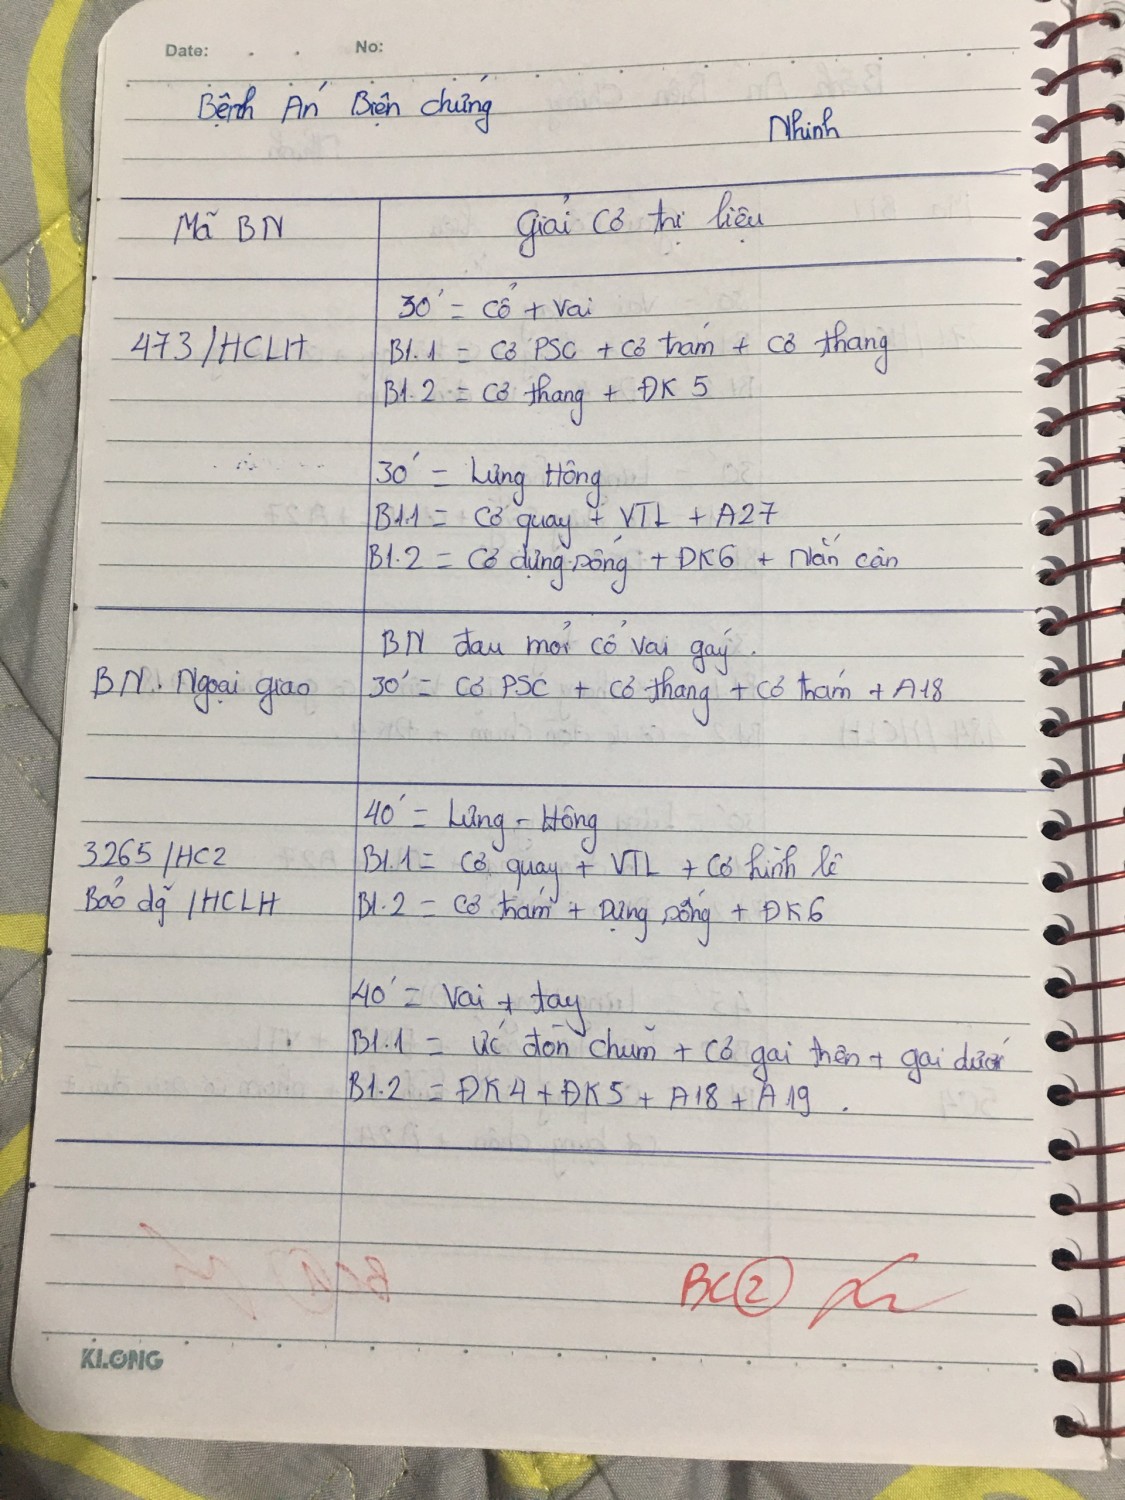 Date: . . No:
Bệnh Án Biện chứng
Nhinh
Mã BN
Giải Cơ trị liệu
30' = Cổ + Vai
473/HCLH
B1.1 = Cơ PSC + Cơ trám + Cơ thang
B1.2 = Cơ thang + ĐK 5
30' = Lưng Hông
B1.1 = Cơ quay + VTL + A27
B1.2 = Cơ dựng sống + ĐK6 + Nắn cân
BN đau mỏi cổ vai gáy.
BN. Ngoại giao
30' = Cơ PSC + Cơ thang + Cơ trám + A18
40' = Lưng - Hông
3265/HC2
B1.1 = Cơ quay + VTL + Cơ hình lê
Bảo dg /HCLH
B1.2 = Cơ trám + Dựng sống + ĐK6
40' = Vai + tay
B1.1 = Ức đòn chũm + Cơ gai trên + gai dưới
B1.2 = ĐK4 + ĐK5 + A18 + A19.
BC2
KLONG